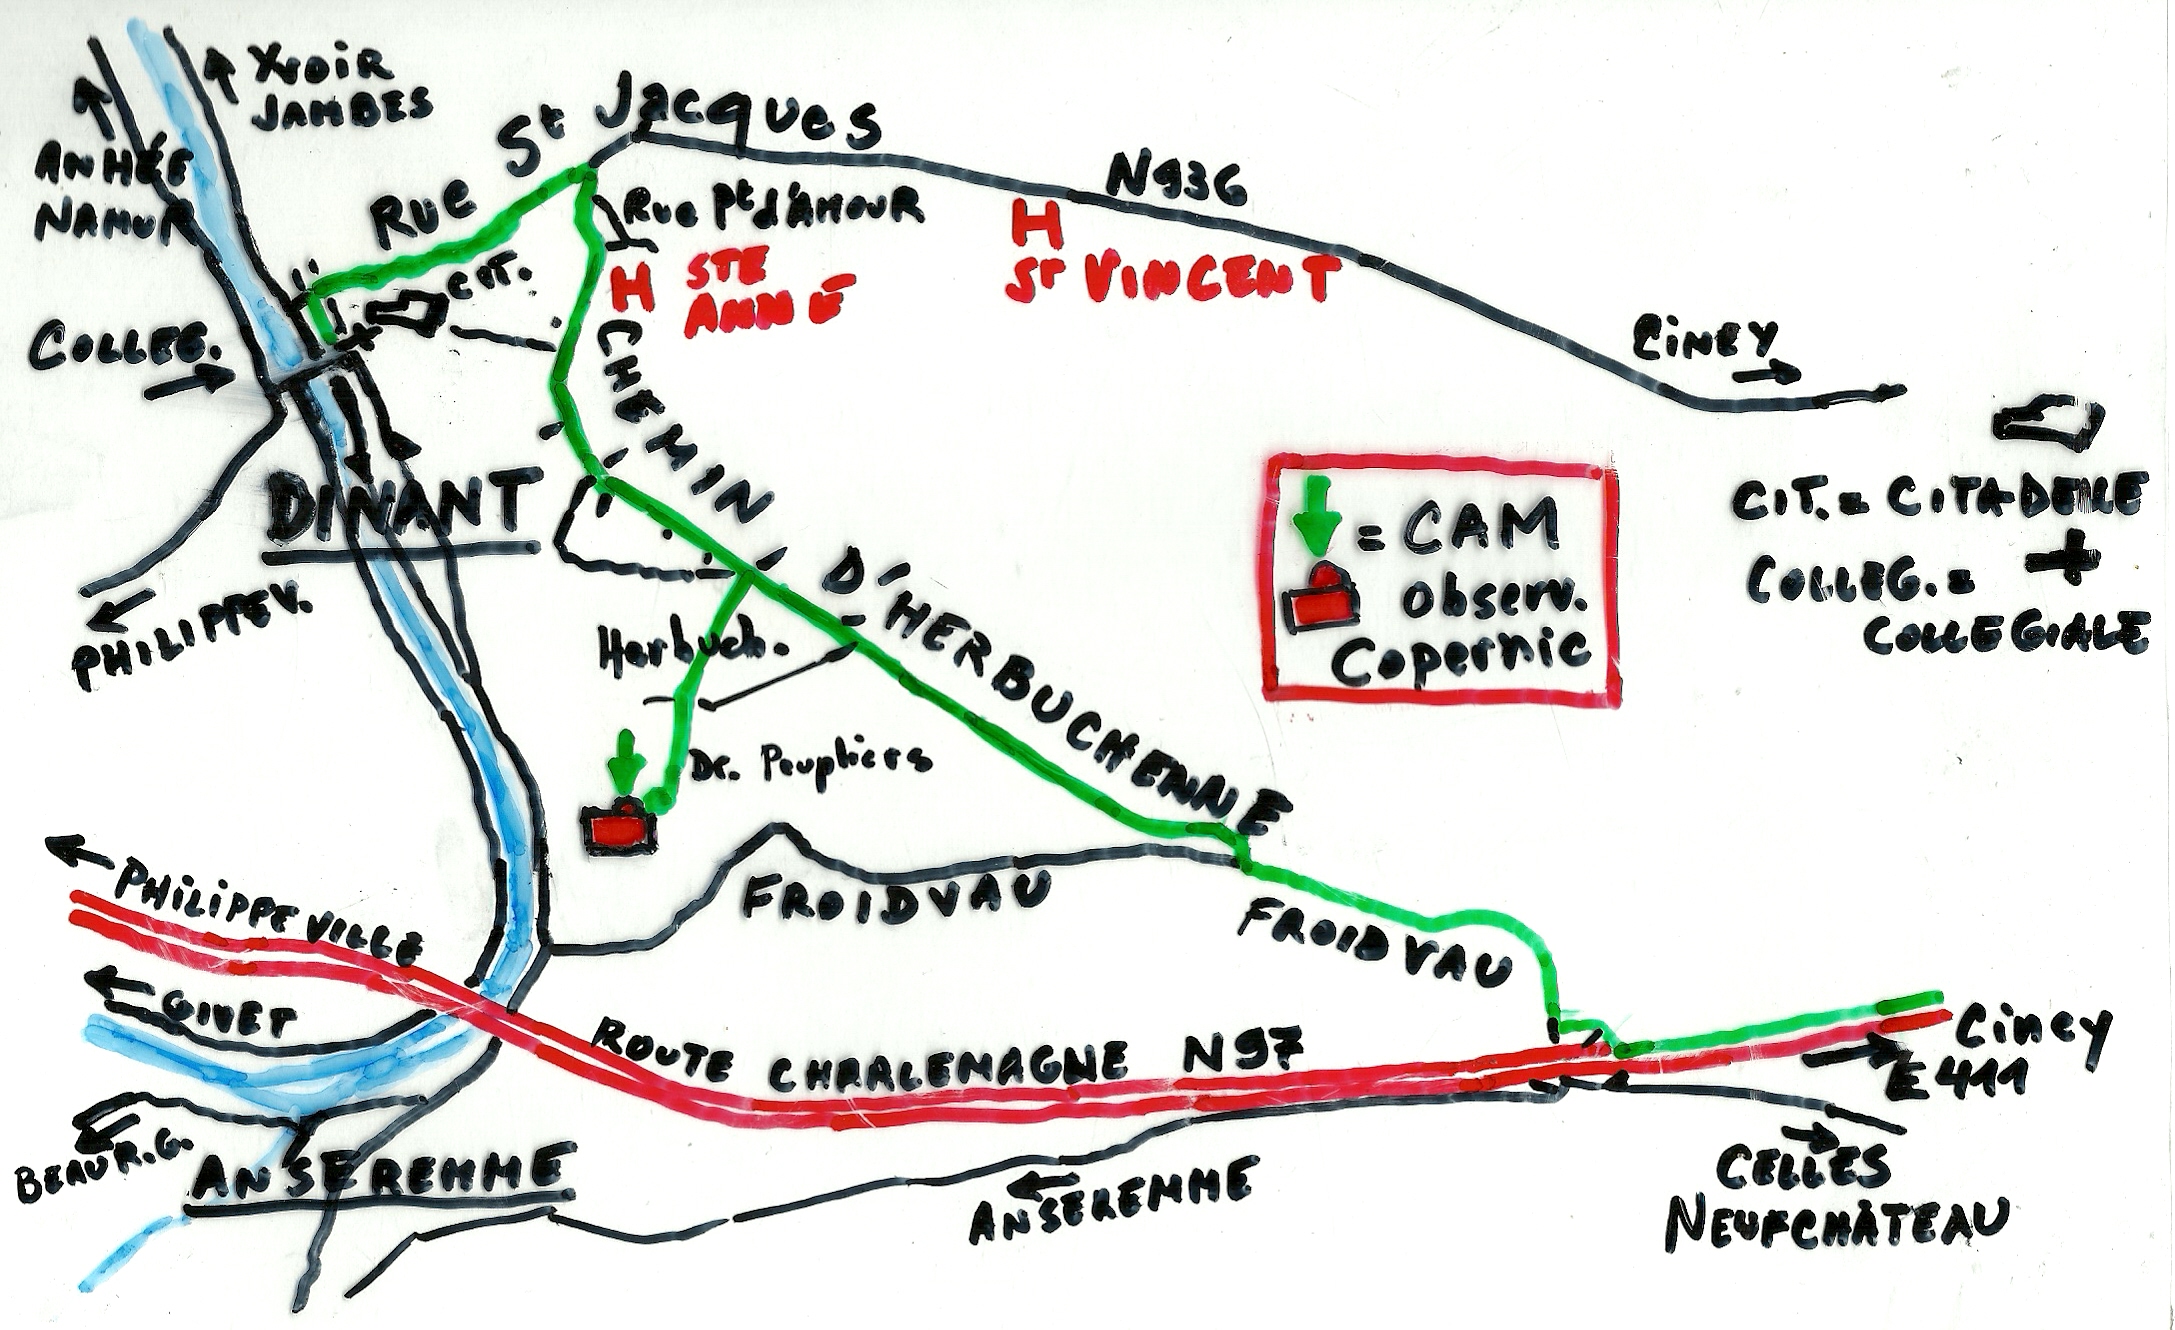 YVOIR
JAMBES
ANHÉE
NAMUR
RUE St Jacques
N936
Rue Pt d'AMOUR
H STE
ANNE
H
St VINCENT
CIT.
COLLEG.
CINEY
CIT. = CITADELLE
COLLEG. = +
COLLEGIALE
DINANT
PHILIPPEV.
CHEMIN D'HERBUCHENNE
= CAM
Observ.
Copernic
Herbuch.
Dr. Peupliers
FROIDVAU
FROIDVAU
PHILIPPEVILLE
GIVET
ROUTE CHRALEMAGNE N97
Ciney
E411
BEAUR.G.
ANSEREMME
ANSEREMME
CELLES
NEUFCHÂTEAU